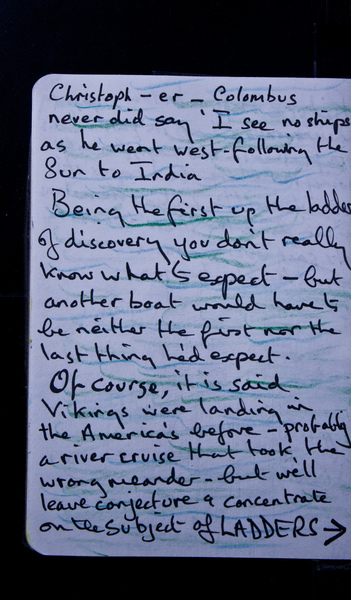 Christoph-er-Colombus
never did say 'I see no ships
as he went west-following the
Sun to India
Being the first up the ladder
of discovery you don't really
know what to expect - but
another boat would have to
be neither the first nor the
last thing he'd expect.
Of course, it is said
Vikings were landing in
the America's before - probably
a river cruise that took the
wrong meander - but we'll
leave conjecture & concentrate
on the subject of LADDERS →